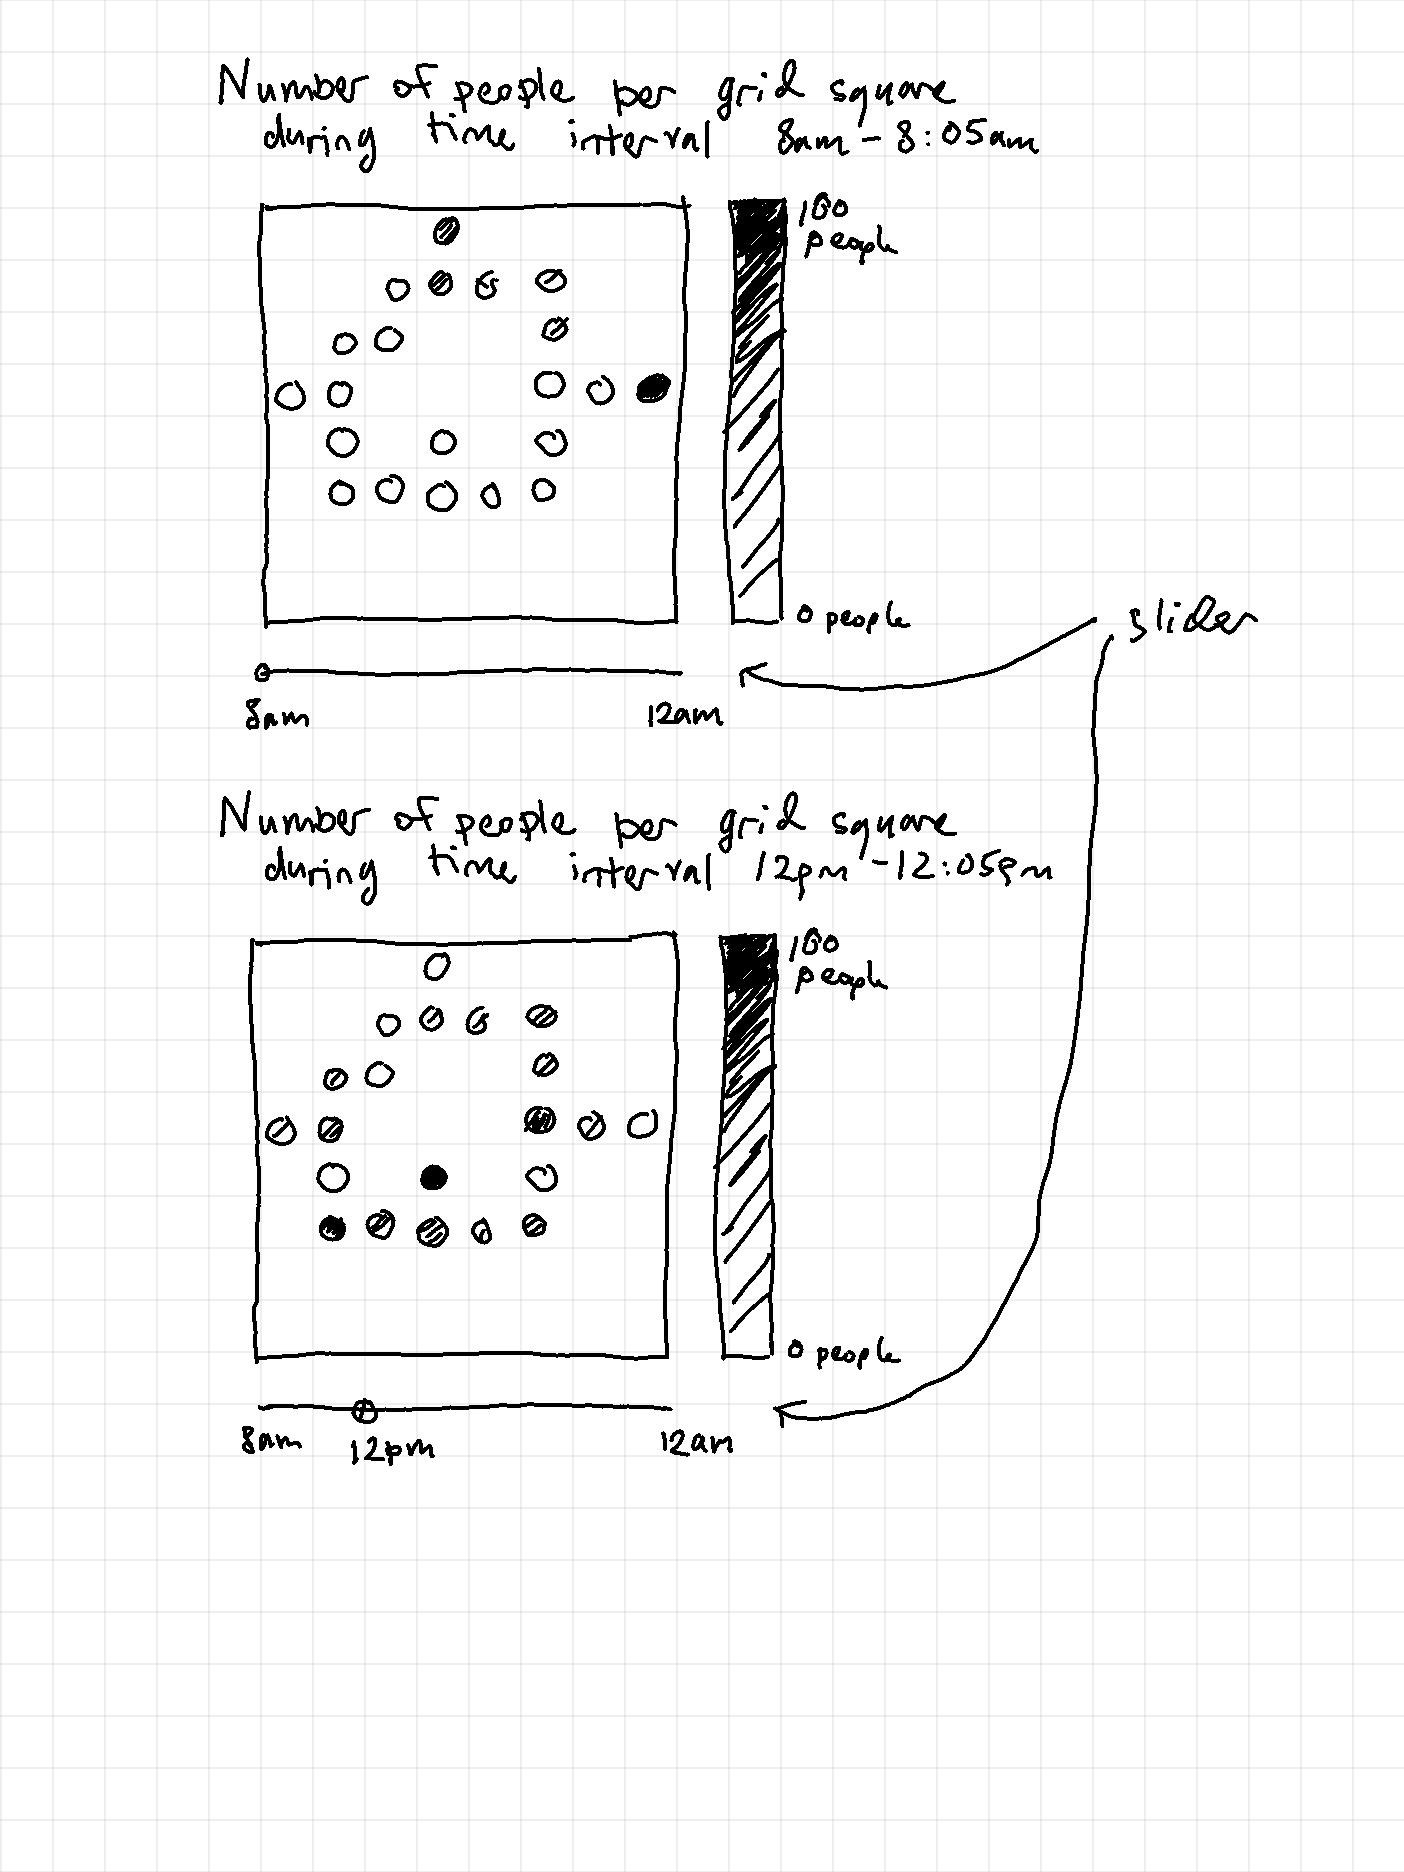 Number of people per grid square
during time interval 8am - 8:05am
100
people
0 people
slider
8am
12am
Number of people per grid square
during time interval 12pm - 12:05pm
100
people
0 people
8am
12pm
12am